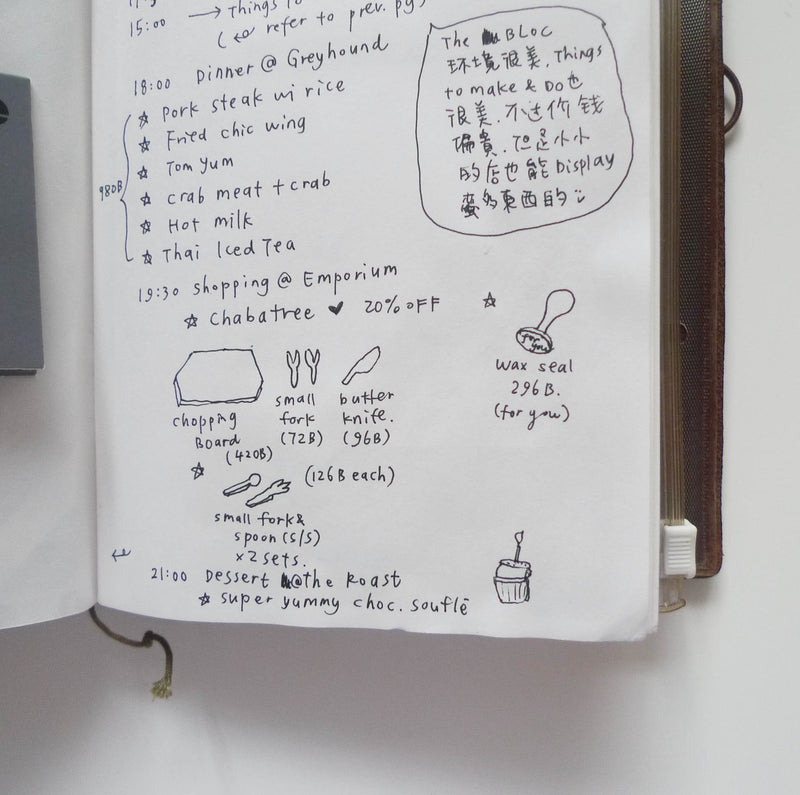 15:00 → Things to
(↩ refer to prev. pg)
18:00 Dinner @ Greyhound
☆ Pork steak w/ rice
☆ Fried chic wing
☆ Tom yum
980B
☆ crab meat + crab
☆ Hot milk
☆ Thai Iced Tea
The BLOC
环境很美, Things
to make & Do也
很美. 不过价钱
偏貴. 但是小小
的店也能Display
蛮多東西的
19:30 shopping @ Emporium
☆ Chabatree ♥ 20% OFF
chopping
Board
(420B)
small
fork
(72B)
butter
knife.
(96B)
☆
for you
wax seal
296B.
(for you)
☆
(126B each)
small fork &
spoon (s/s)
x2 sets.
21:00 Dessert @the Roast
☆ super yummy choc. souflē